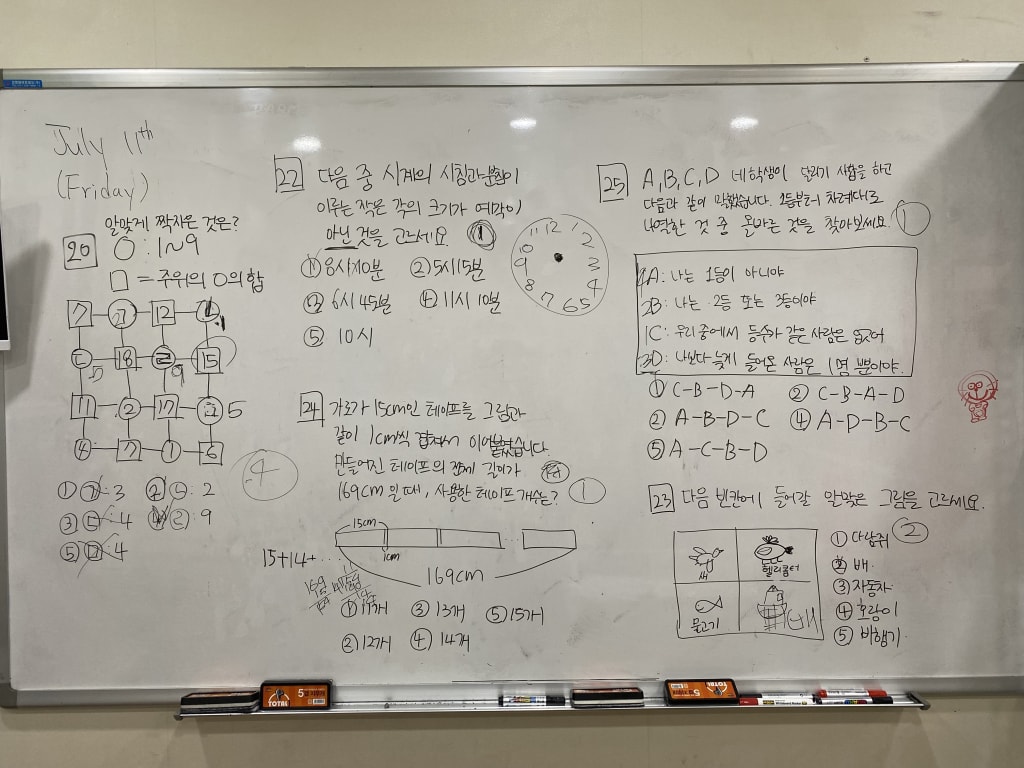 July 11th
(Friday)
알맞게 짝지은 것은?
20 ○ : 1~9
□ = 주위의 ○의 합
7 ㄱ 12
18 15
5
9
11 17 5
4 7 1 6
① ㄱ: 3 ② ㄴ: 2
③ ㄷ: 4 ④ ㄹ: 9
⑤ ㅁ: 4
4
22 다음 중 시계의 시침과 분침이
이루는 작은 각의 크기가 예각이
아닌 것을 고르세요. ①
① 8시 10분 ② 5시 15분
③ 6시 45분 ④ 11시 10분
⑤ 10시
11 12 1
10 2
9 3
8 4
7 6 5
24 가로가 15cm인 테이프를 그림과
같이 1cm씩 겹쳐서 이어붙였습니다.
만들어진 테이프의 전체 길이가
169cm 일 때, 사용한 테이프 개수는? ①
15cm
1cm
15+14+...
169cm
① 11개 ③ 13개 ⑤ 15개
② 12개 ④ 14개
25 A, B, C, D 네 학생이 달리기 시합을 하고
다음과 같이 말했습니다. 1등부터 차례대로
나열한 것 중 올바른 것을 찾아보세요. ①
4A: 나는 1등이 아니야
2B: 나는 2등 또는 3등이야
1C: 우리 중에서 등수가 같은 사람은 없어
3D: 나보다 늦게 들어온 사람은 1명 뿐이야.
① C-B-D-A ② C-B-A-D
② A-B-D-C ④ A-D-B-C
⑤ A-C-B-D
23 다음 빈칸에 들어갈 알맞은 그림을 고르세요.
②
새
헬리콥터
물고기
① 다람쥐
② 배
③ 자동차
④ 호랑이
⑤ 비행기
TOTAL
TOTAL